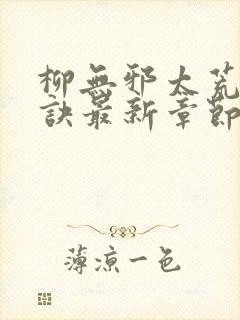 柳無邪太荒
訣最新章節
薄涼一色